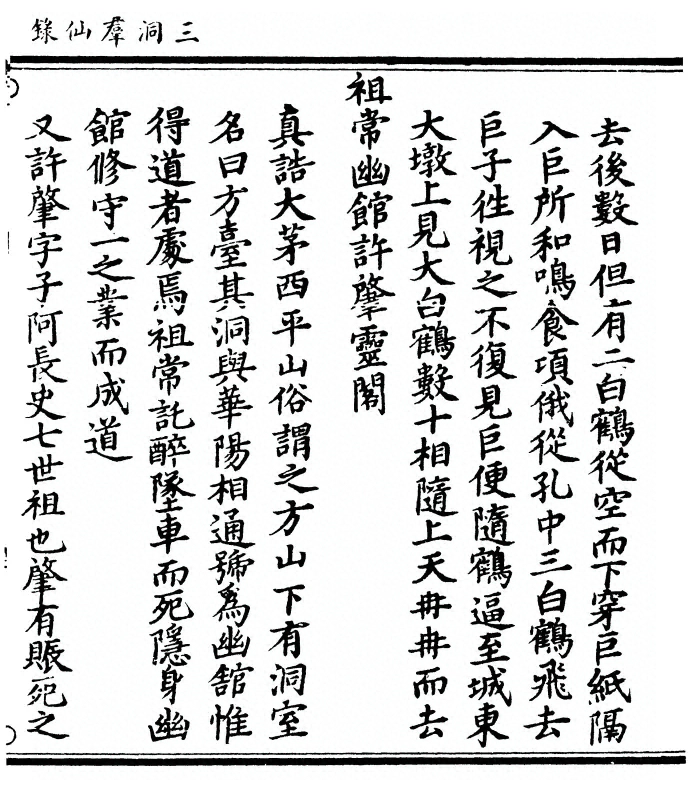 三洞羣仙錄
去後數日但有二白鶴從空而下穿巨紙隔
入巨所和鳴食項俄從孔中三白鶴飛去
巨子徃視之不復見巨便隨鶴逼至城東
大墩上見大白鶴數十相隨上天冉冉而去
祖常幽館許肇靈閣
真誥大茅西平山俗謂之方山下有洞室
名曰方臺其洞與華陽相通號爲幽舘惟
得道者處焉祖常託醉墜車而死隱身幽
館修守一之業而成道
又許肇字子阿長史七世祖也肇有賑死之